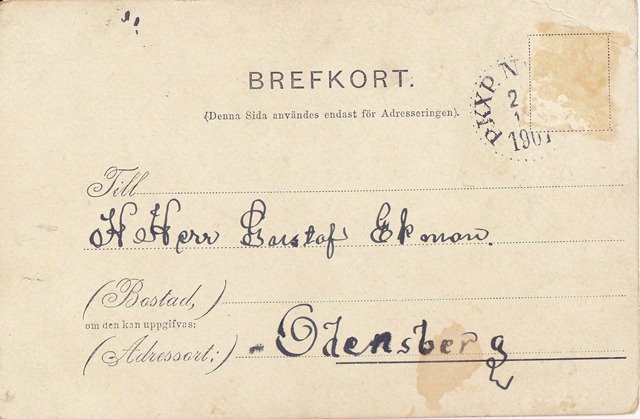 BREFKORT.
(Denna Sida användes endast för Adresseringen).
PKXP. N.
2
1
1901
Till
H Herr Gustaf Ekman.
(Bostad,)
om den kan uppgifvas:
(Adressort:) - Odensberg